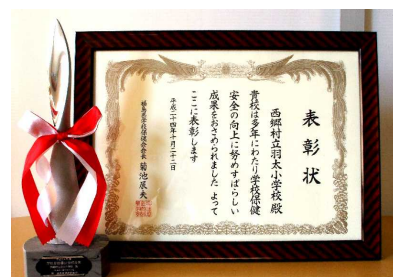 表彰状
西郷村立羽太小学校 殿
貴校は多年にわたり学校保健
安全の向上に努めすばらしい
成果をおさめられました よって
ここに表彰します
平成二十四年十月二十二日
福島県学校保健会会長 菊池辰夫